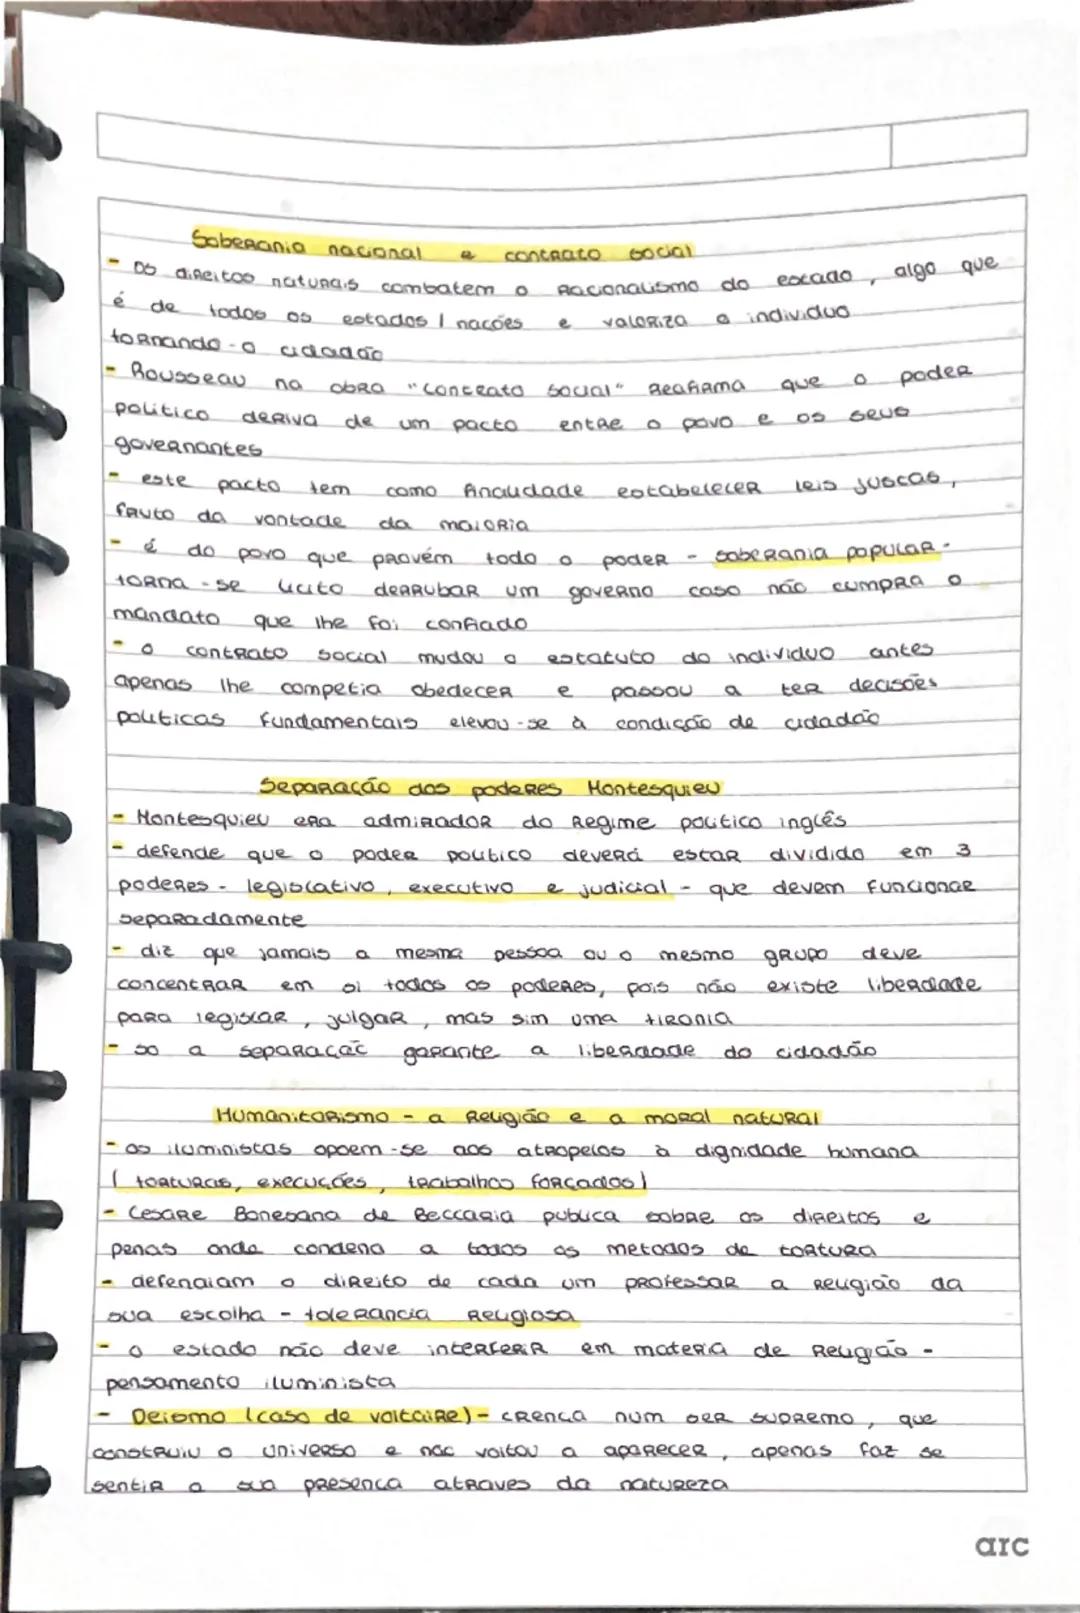 Soberania nacional e contrato social
- os direitos naturais combatem o racionalismo do estado, algo que
é de todos os estados / nações e valoriza o individuo
tornando-o cidadão
- Rousseau na obra "contrato social" reafirma que o poder
politico deriva de um pacto entre o povo e os seus
governantes
- este pacto tem como finalidade estabelecer leis justas,
fruto da vontade da maioria
- é do povo que provém todo o poder - soberania popular -
torna-se licito derrubar um governo caso não cumpra o
mandato que lhe foi confiado
- o contrato social mudou o estatuto do individuo antes
apenas lhe competia obedecer e passou a ter decisões
politicas fundamentais elevou-se à condição de cidadão
Separação dos poderes Montesquieu
- Montesquieu era admirador do regime politico inglês
- defende que o poder politico deverá estar dividido em 3
poderes - legislativo, executivo e judicial - que devem funcionar
separadamente
- diz que jamais a mesma pessoa ou o mesmo grupo deve
concentrar em si todos os poderes, pois não existe liberdade
para legislar, julgar, mas sim uma tirania
- so a separação garante a liberdade do cidadão
Humanitarismo - a religião e a moral natural
- os iluministas opoem-se aos atropelos à dignidade humana
( torturas, execuções, trabalhos forçados)
- Cesare Bonesana de Beccaria publica sobre os direitos e
penas onde condena a todos os metodos de tortura
- defendiam o direito de cada um professar a religião da
sua escolha - tolerancia religiosa
- o estado não deve interferir em materia de religião -
pensamento iluminista
- Deismo (caso de voltaire) - crença num ser supremo, que
construiu o universo e não voltou a aparecer, apenas faz se
sentir a sua presença atraves da natureza
arc